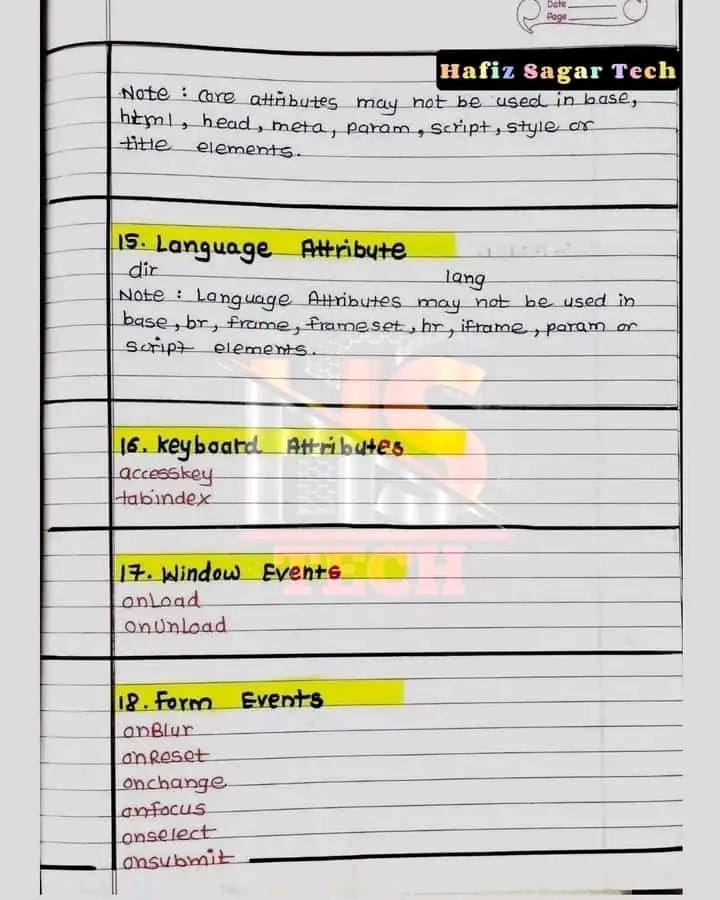 Date
Page
Hafiz Sagar Tech
Note : Core attributes may not be used in base,
html, head, meta, param, script, style or
title elements.
15. Language Attribute
dir lang
Note : Language Attributes may not be used in
base, br, frame, frameset, hr, iframe, param or
script elements.
16. keyboard Attributes
accesskey
tabindex
HS
TECH
17. Window Events
onLoad
onUnLoad
18. Form Events
onBlur
onReset
onchange
onfocus
onselect
onsubmit